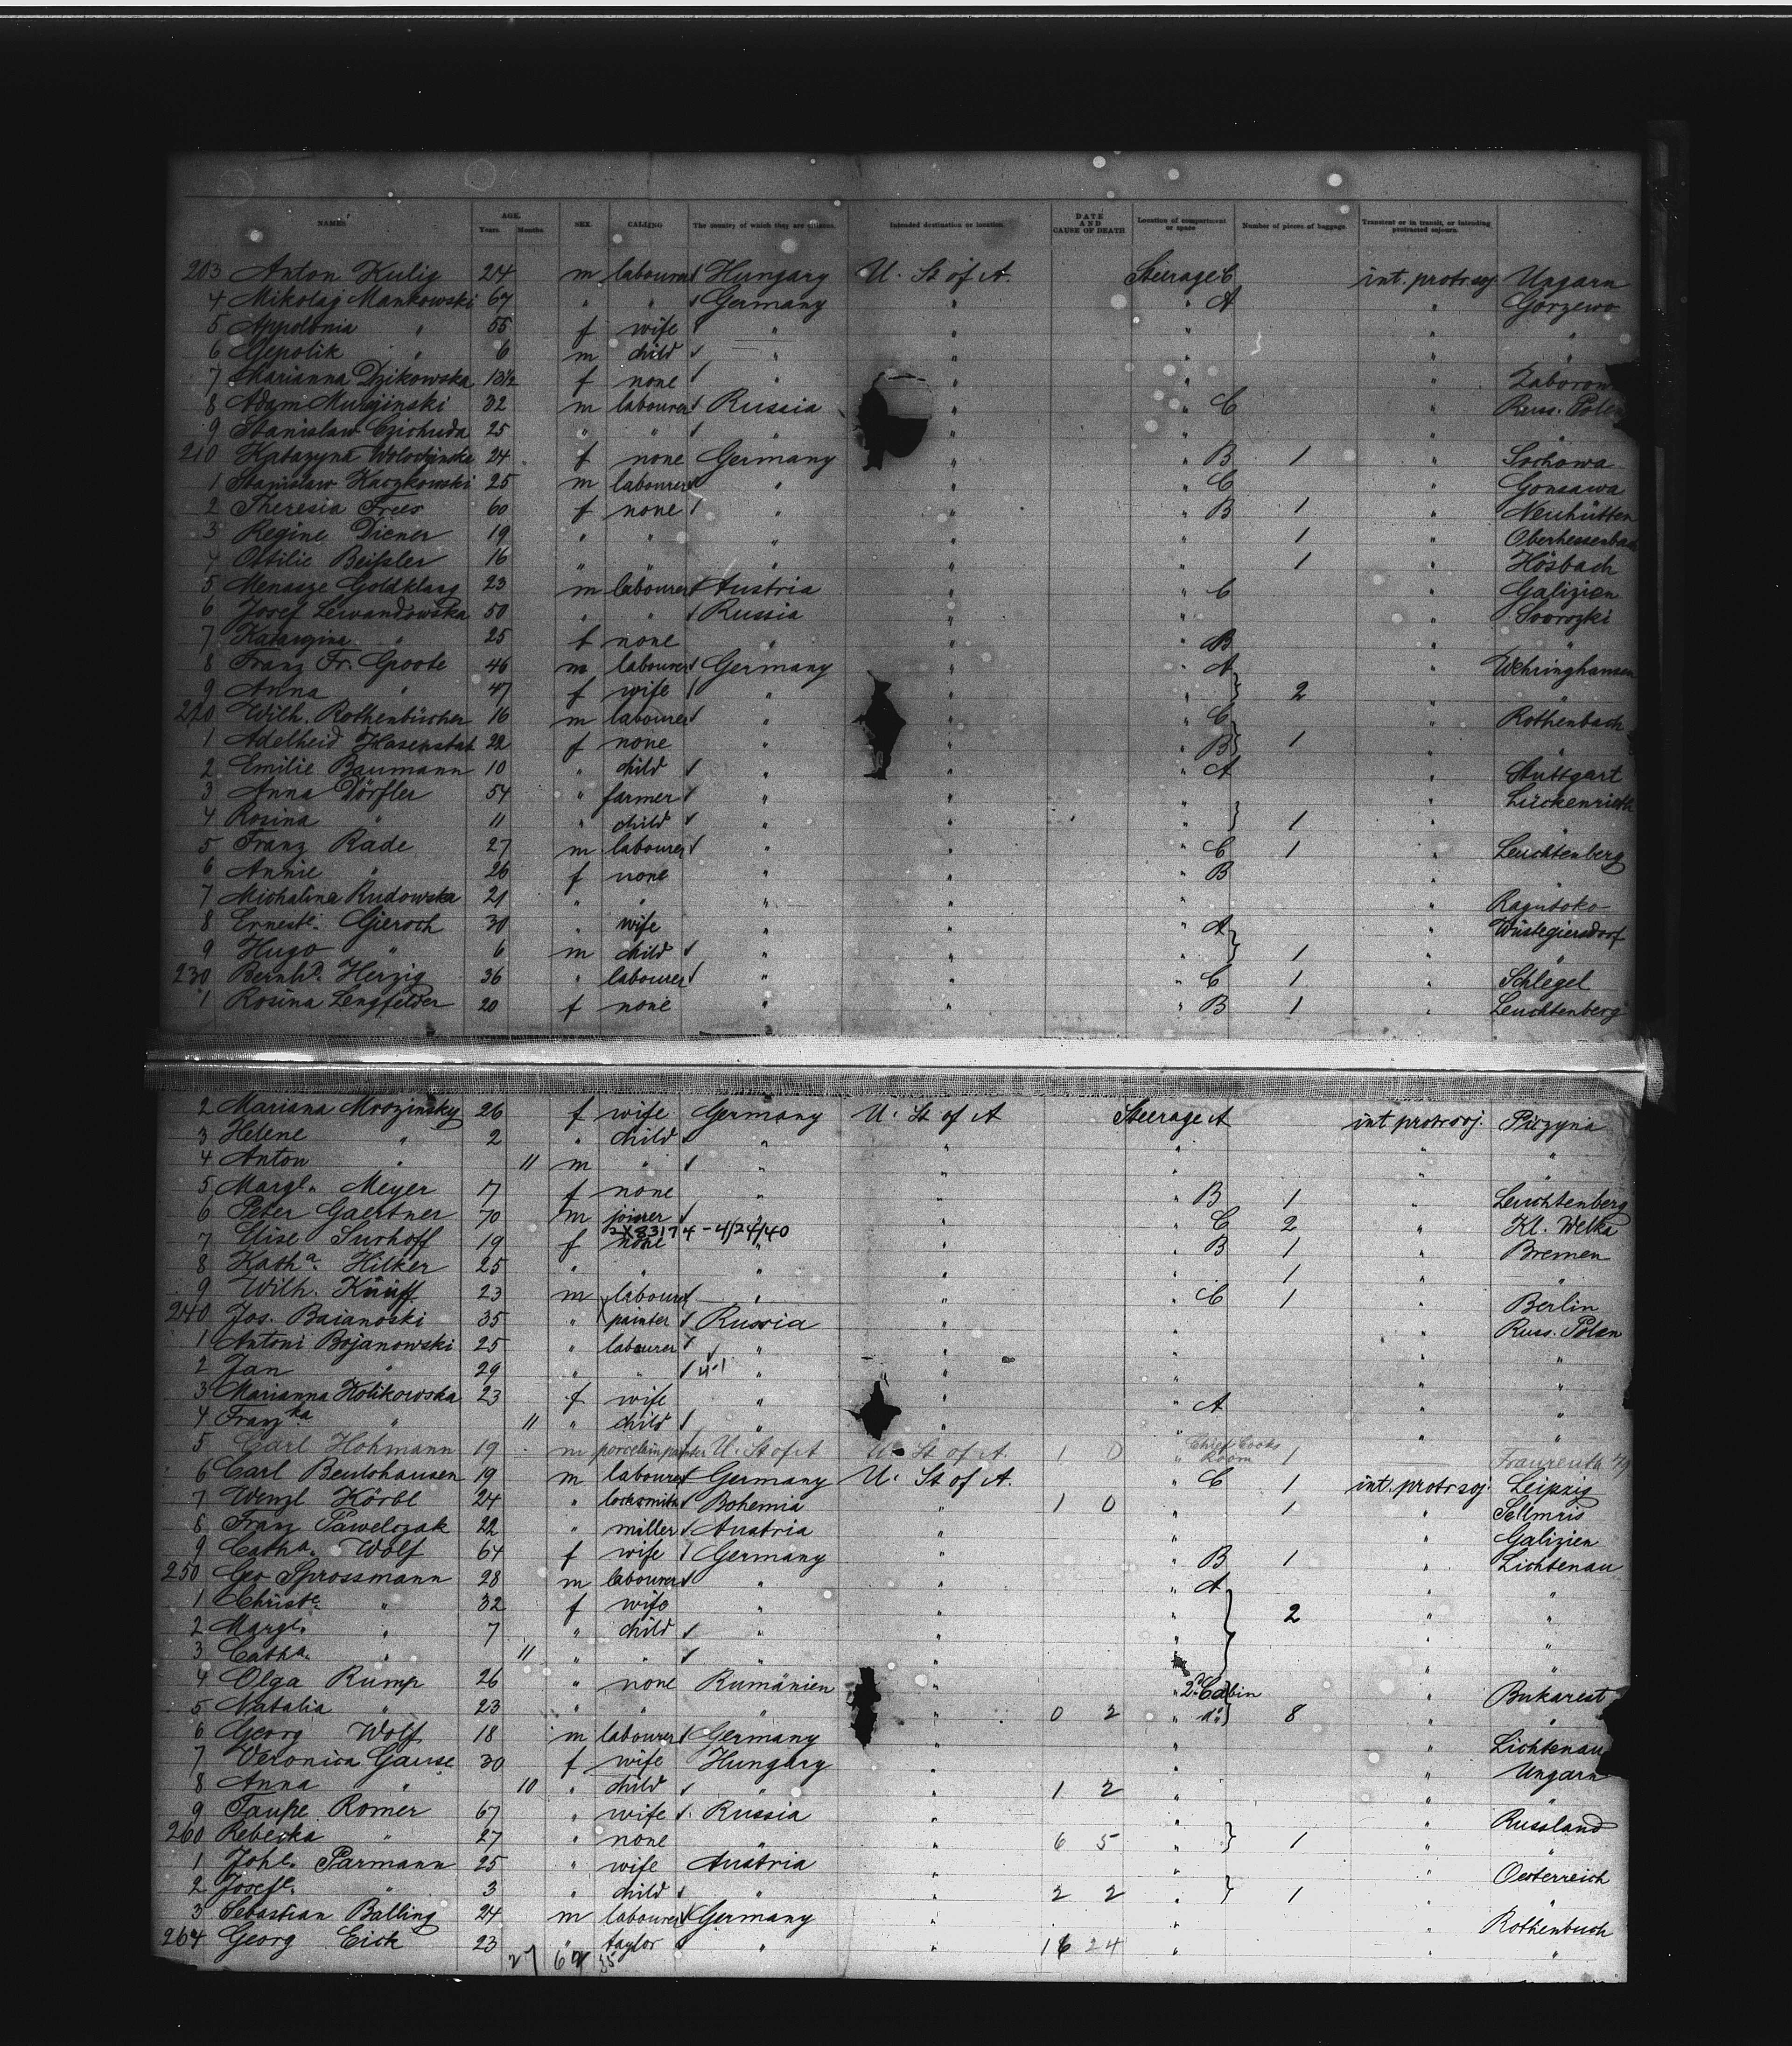 NAMES. AGE. Years. Months. SEX. CALLING The country of which they are citizens. Intended destination or location. DATE AND CAUSE OF DEATH Location of compartment or space. Number of pieces of baggage. Transient or in transit, or intending protracted sojourn.
203 Anton Kulig 24 m labourer Hungary U. St of A. Steerage C int. protr. soj. Ungarn
4 Mikolaj Mankowski 67 " " Germany " " A " Gorzewo
5 Appolonia " 55 f wife " " " " "
6 Gepolik " 6 m child " " " " "
7 Marianna Dzikowska 13½ f none " " " "
8 Adam Murzinski 32 m labourer Russia " " C " Russ. Polen
9 Stanislaw Czichuda 25 " " " " " " "
210 Katazyna 24 f none Germany " " B 1 " Sochowa
1 Stanislaw Kaczkowski 25 m labourer " " " C " Gonsawa
2 Theresia Frees 60 f none " " " B 1 " Neuhütten
3 Regine Diener 19 " " " " " 1 " Oberhessenbach
4 Ottilie Beißler 16 " " " " " 1 " Hösbach
5 Menasze Goldklang 23 m labourer Austria " " C " Galizien
6 Josef Lewandowska 50 " " Russia " " "
7 Katarzina " 25 f none " " " B " "
8 Franz Fr. Groote 46 m labourer Germany " " A " Wehringhausen
9 Anna " 47 f wife " " " } 2 " "
220 Wilh. Rothenbücher 16 m labourer " " " C " Rothenbach
1 Adelheid Hasenstab 22 f none " " " B } 1 " "
2 Emilie Baumann 10 " child " " " A " Stuttgart
3 Anna Dörfler 54 " farmer " " " " Lückenrieth
4 Rosina " 11 " child " " " } 1 " "
5 Franz Rade 27 m labourer " " " C 1 " Leuchtenberg
6 Annie " 26 f none " " " B " "
7 Michalina Rudowska 21 " " " " " "
8 Erneste. Gieroch 30 " wife " " " A " Wüstegiersdorf
9 Hugo " 6 m child " " " } 1 " "
230 Bernhd. Herzig 36 " labourer " " " C 1 " Schlegel
1 Rosina Lengfelder 20 f none " " " B 1 " Leuchtenberg
2 Mariana Mrozinsky 26 f wife Germany U. St of A Steerage A int protr soj. Piczyna
3 Helene " 2 " child " " " " "
4 Anton " 11 m " " " " " "
5 Margl. Meyer 17 f none " " " B 1 " Leuchtenberg
6 Peter Gaertner 70 m joiner " " " C 2 " Kl. Welka
2X83174 - 4/24/40
7 Elise Surhoff 19 f none " " " B 1 " Bremen
8 Katha. Hilker 25 " " " " " 1 " "
9 Wilh. Knüff 23 m labourer " " " C 1 " Berlin
240 Jos. Baianoski 35 " painter Russia " " " Russ. Polen
1 Antoni Bojanowski 25 " labourer " " " " "
2 Jan " 29 " " " " " " "
3 Marianna Kolikowska 23 f wife " " " A " "
4 Franzka " 11 " child " " " " "
5 Carl Hohmann 19 m porcelain painter U. St of A U. St of A. 1 0 " Chief Cooks Room 1 Fraureuth
6 Carl Beulshausen 19 m labourer Germany U. St of A. " C 1 int. protr soj. Leipzig
7 Wenzl Körbl 24 " locksmith Bohemia " 1 0 " 1 " Sellmris
8 Franz Pawelczak 22 " miller Austria " " " Galizien
9 Catha. Wolf 64 f wife Germany " " B 1 " Lichtenau
250 Geo Sprossmann 28 m labourer " " " A " "
1 Christe. " 32 f wife " " " } 2 " "
2 Margl. " 7 " child " " " " "
3 Catha. " 11 " " " " " "
4 Olga Rump 26 " none Rumänien " " 2d Cabin " Bukarest
5 Natalia " 23 " " " " 0 2 " d° } 8 " "
6 Georg Wolf 18 m labourer Germany " " " Lichtenau
7 Veronica Gause 30 f wife Hungary " " " Ungarn
8 Anna " 10 " child " " 1 2 " " "
9 Taupe Romer 67 " wife Russia " " " Russland
260 Rebecka " 27 " none " " 6 5 " } 1 " "
1 Johe. Parmann 25 " wife Austria " " " Oesterreich
2 Josefe. " 3 " child " " 2 2 " } 1 " "
3 Sebastian Balling 24 m labourer Germany " " " Rothenbuch
264 Georg Eick 23 " taylor " " 16 24 " " "